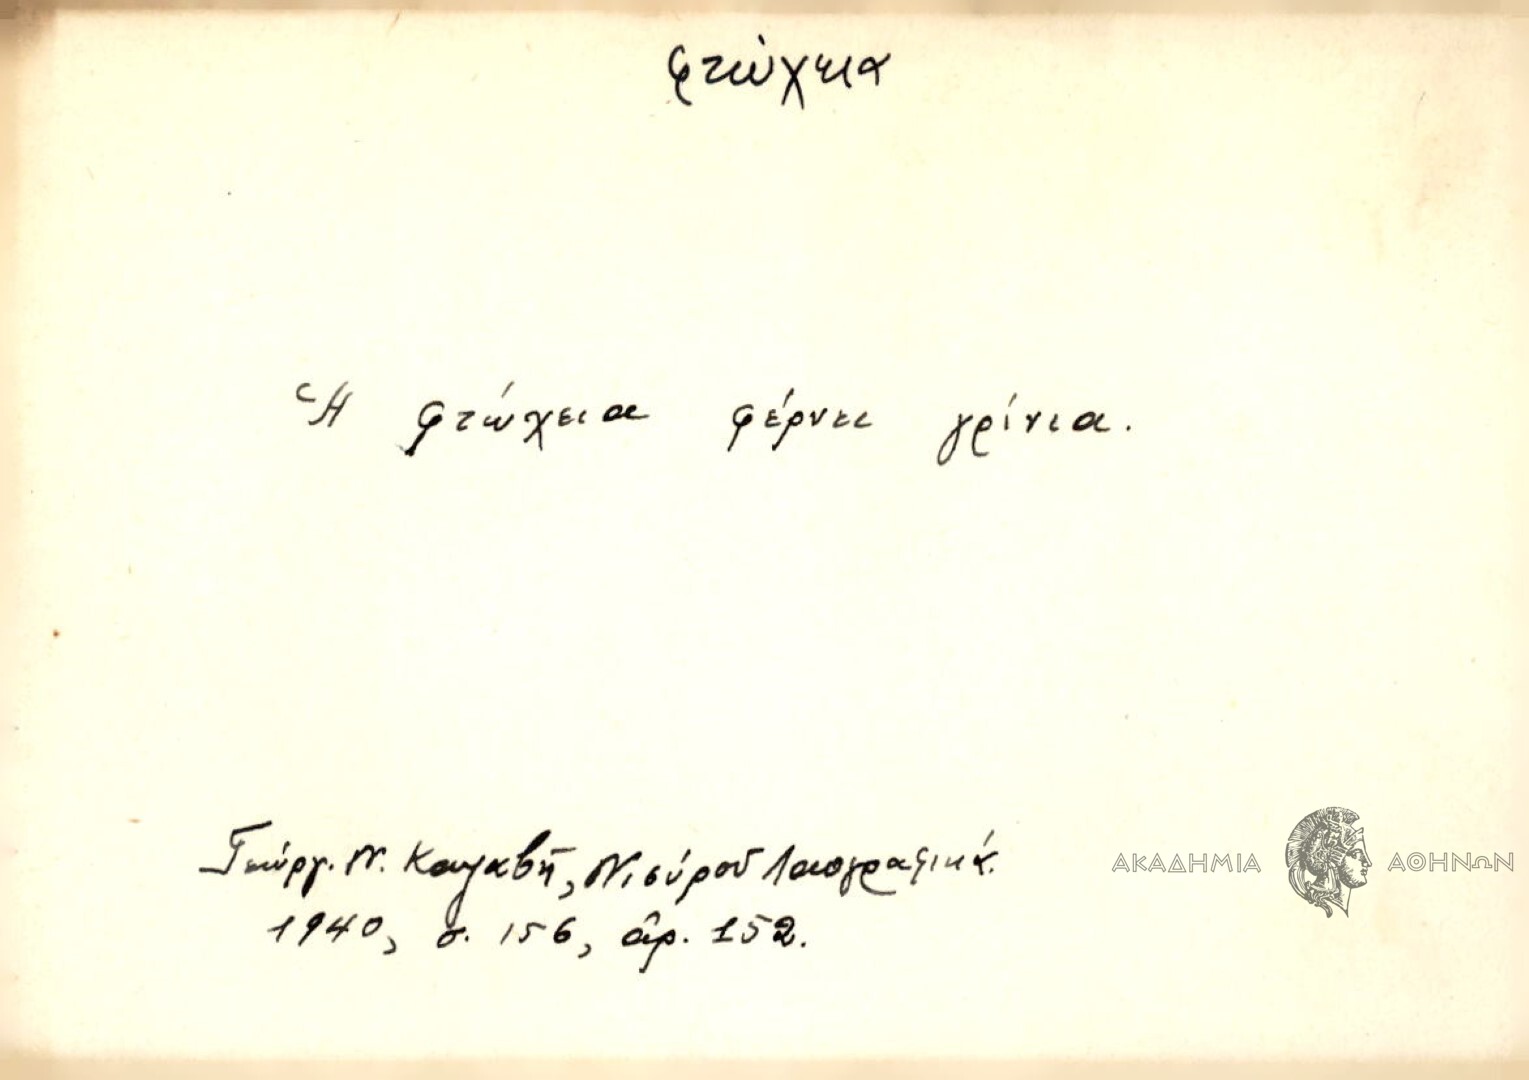 φτώχεια
Ἡ φτώχεια φέρνει γρίνια.
Γεώργ. Ν. Καζαβῆ, Νισύρου Λαογραφικά.
1940, σ. 156, ἀρ. 152.
ΑΚΑΔΗΜΙΑ ΑΘΗΝΩΝ